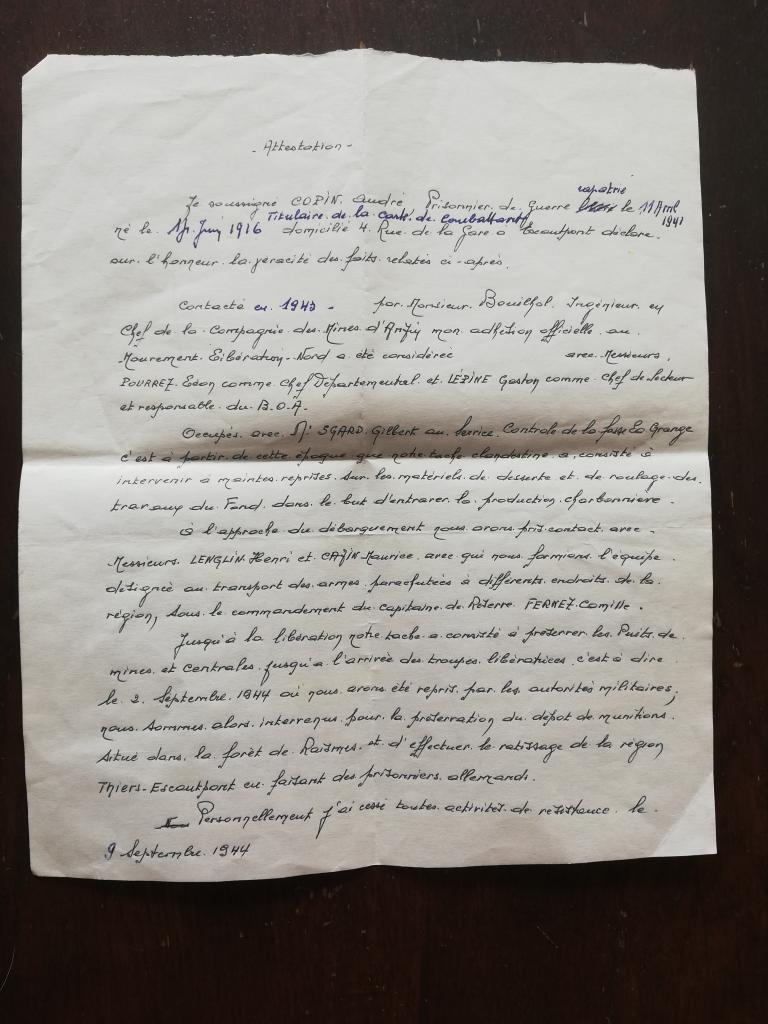 - Attestation -
rapatrié
Je soussigné COPIN. André, Prisonnier. de. Guerre le 11 Avril
1941
Titulaire. de. la Carte. de. Combattant,
né le. Juin 1916 domicilié 4. Rue. de. la Gare. à Escautpont déclare.
sur. l'honneur. la véracité. des faits. relatés ci-après.
Contacté en. 1943 - par. Monsieur. Bouilhol. Ingénieur. en
Chef. de la. Compagnie. des. Mines. d'Anzin mon. adhésion officielle. au.
Mouvement. Libération-Nord a été considérée avec. Messieurs.
POURREZ. Léon comme. Chef Départemental. et. LÉPINE Gaston comme. Chef. de Secteur
et responsable. du. B.O.A.
Occupés. avec. Mr. SGARD. Gilbert au. Service. Controle. de la. fosse La. Grange
c'est à partir. de cette. époque que notre. tache. clandestine. a. consisté à
intervenir à maintes. reprises. sur. les. matériels. de. desserte et. de. roulage. des.
travaux du. Fond. dans. le. but d'entraver. la. production. charbonnière.
à l'approche du. débarquement nous. avons. pris. contact. avec -
Messieurs. LENGLIN. Henri et. CAZIN Maurice. avec qui nous. formions. l'équipe.
désignée au. transport des. armes. parachutées à différents. endroits. de. la.
région, sous. le. commandement du. capitaine. de. Réserve. FERNEZ. Camille.
Jusqu'à la libération notre. tache. a. consisté à préserver. les. Puits. de.
mines. et. Centrales. jusqu'à. l'arrivée. des. troupes. libératrices. c'est à dire
le. 2. Septembre. 1944 où nous. avons. été repris. par. les. autorités militaires;
nous. sommes. alors. intervenus. pour. la. préservation du. dépot de. munitions.
situé dans. la forêt de. Raismes. et. d'effectuer. le. ratissage. de la. région
Thiers-Escautpont en faisant des. prisonniers. allemands.
Personnellement j'ai cessé toutes. activités. de. resistance. le.
9 Septembre. 1944